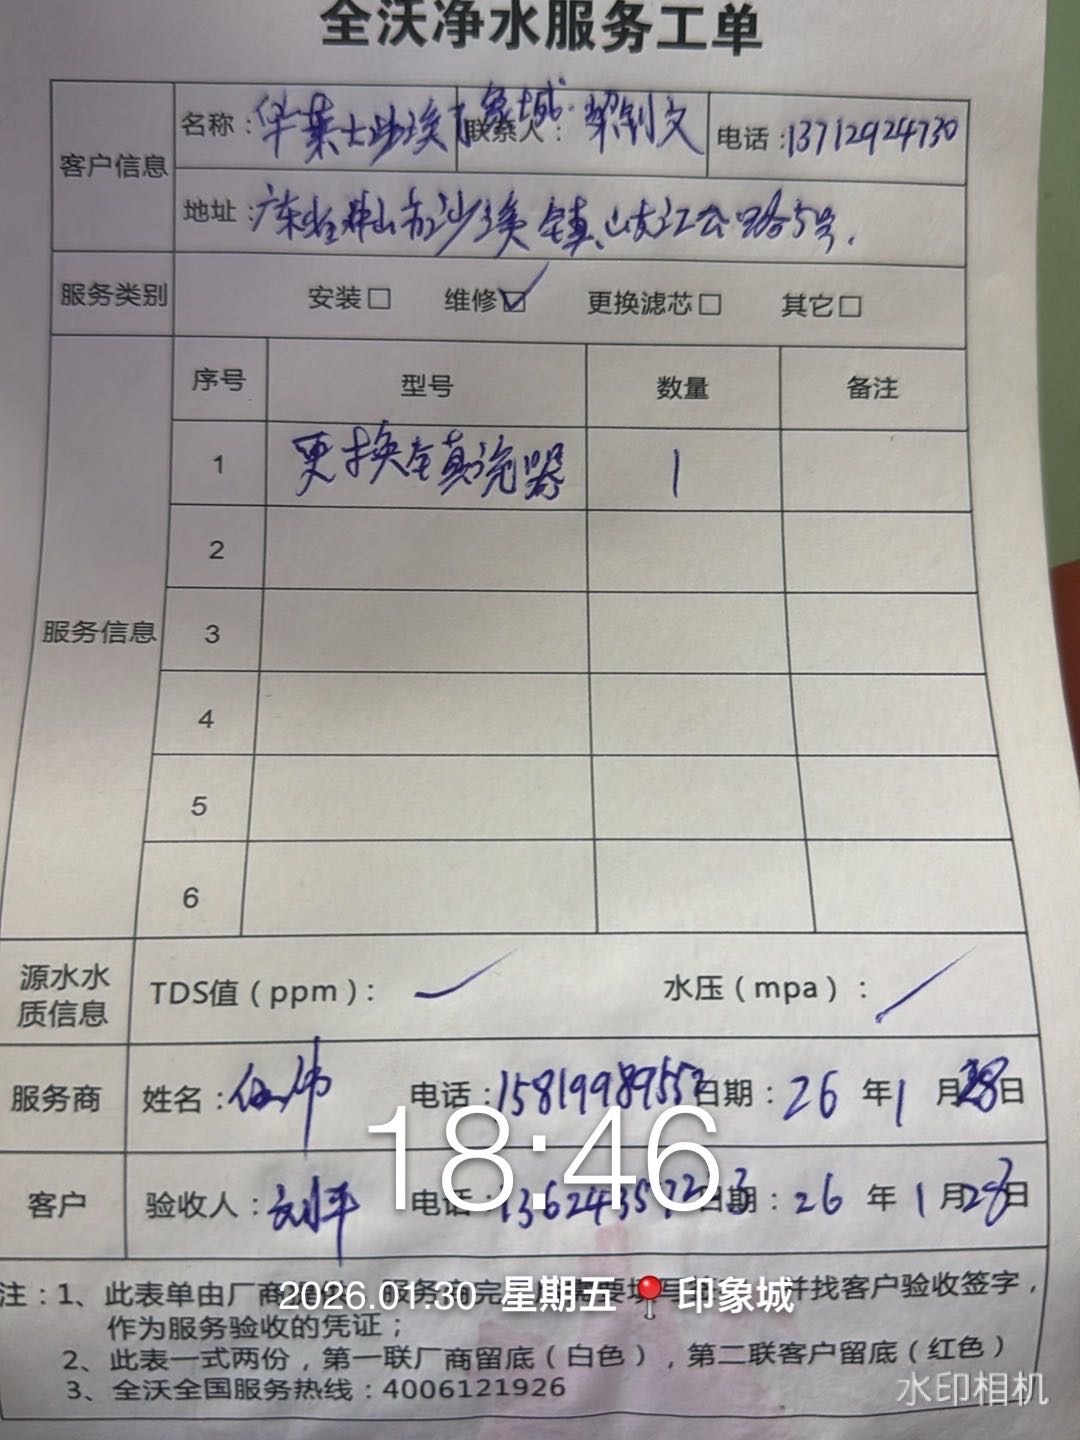 全沃净水服务工单
客户信息
名称：华莱士沙埃印象城
联系人：梁钊文
电话：13712924730
地址：广东省佛山市沙埃镇
服务类别 安装□ 维修☑ 更换滤芯□ 其它□
服务信息
序号 型号 数量 备注
1 更换全真流器 1
2
3
4
5
6
源水水质信息
TDS值（ppm）：
水压（mpa）：
服务商 姓名：伍伟 电话：1581998955 日期：26年1月28日
客户 验收人：刘平 电话： 日期：26年1月28日
18:46
2026.01.30 星期五 印象城
注：1、此表单由厂商 服务商完 并找客户验收签字，
作为服务验收的凭证；
2、此表一式两份，第一联厂商留底（白色），第二联客户留底（红色）
3、全沃全国服务热线：4006121926
水印相机